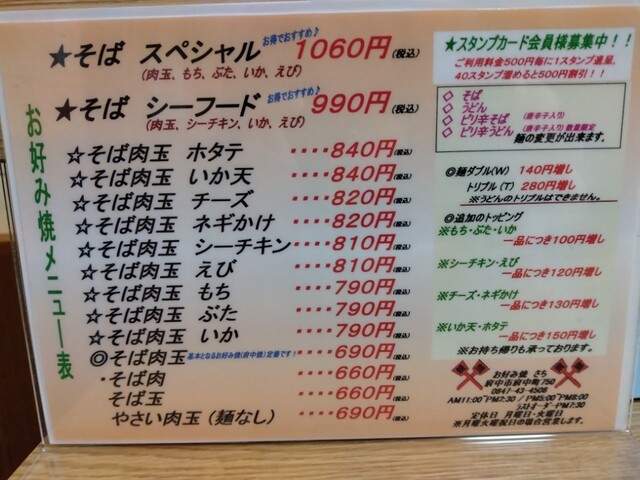 お好み焼メニュー表
★そば スペシャル お得でおすすめ♪ 1060円(税込)
(肉玉、もち、ぶた、いか、えび)
★そば シーフード お得でおすすめ♪ 990円(税込)
(肉玉、シーチキン、いか、えび)
☆そば肉玉 ホタテ ････840円(税込)
☆そば肉玉 いか天 ････840円(税込)
☆そば肉玉 チーズ ････820円(税込)
☆そば肉玉 ネギかけ ････820円(税込)
☆そば肉玉 シーチキン････810円(税込)
☆そば肉玉 えび ････810円(税込)
☆そば肉玉 もち ････790円(税込)
☆そば肉玉 ぶた ････790円(税込)
☆そば肉玉 いか ････790円(税込)
◎そば肉玉 基本となるお好み焼(府中焼)定番です! ････690円(税込)
・そば肉 ････660円(税込)
そば玉 ････660円(税込)
やさい肉玉(麺なし) ････690円(税込)
★スタンプカード会員様募集中!!
ご利用料金500円毎に1スタンプ進呈、
40スタンプ溜めると500円割引!!
◇ そば
◇ うどん
◇ ピリ辛そば (唐辛子入り)
◇ ピリ辛うどん (唐辛子入り)数量限定
麺の変更が出来ます。
◎麺ダブル(W) 140円増し
トリプル(T) 280円増し
※うどんのトリプルはできません。
◎追加のトッピング
※もち・ぶた・いか
一品につき100円増し
※シーチキン・えび
一品につき120円増し
※チーズ・ネギかけ
一品につき130円増し
※いか天・ホタテ
一品につき150円増し
※お持ち帰りも承っております。
お好み焼 さち
府中市府中町750
0847-43-4508
AM11:00~PM2:30 / PM5:00~PM8:00
ラストオーダーPM7:30
定休日 月曜日・火曜日
※月曜火曜祝日の場合営業します。